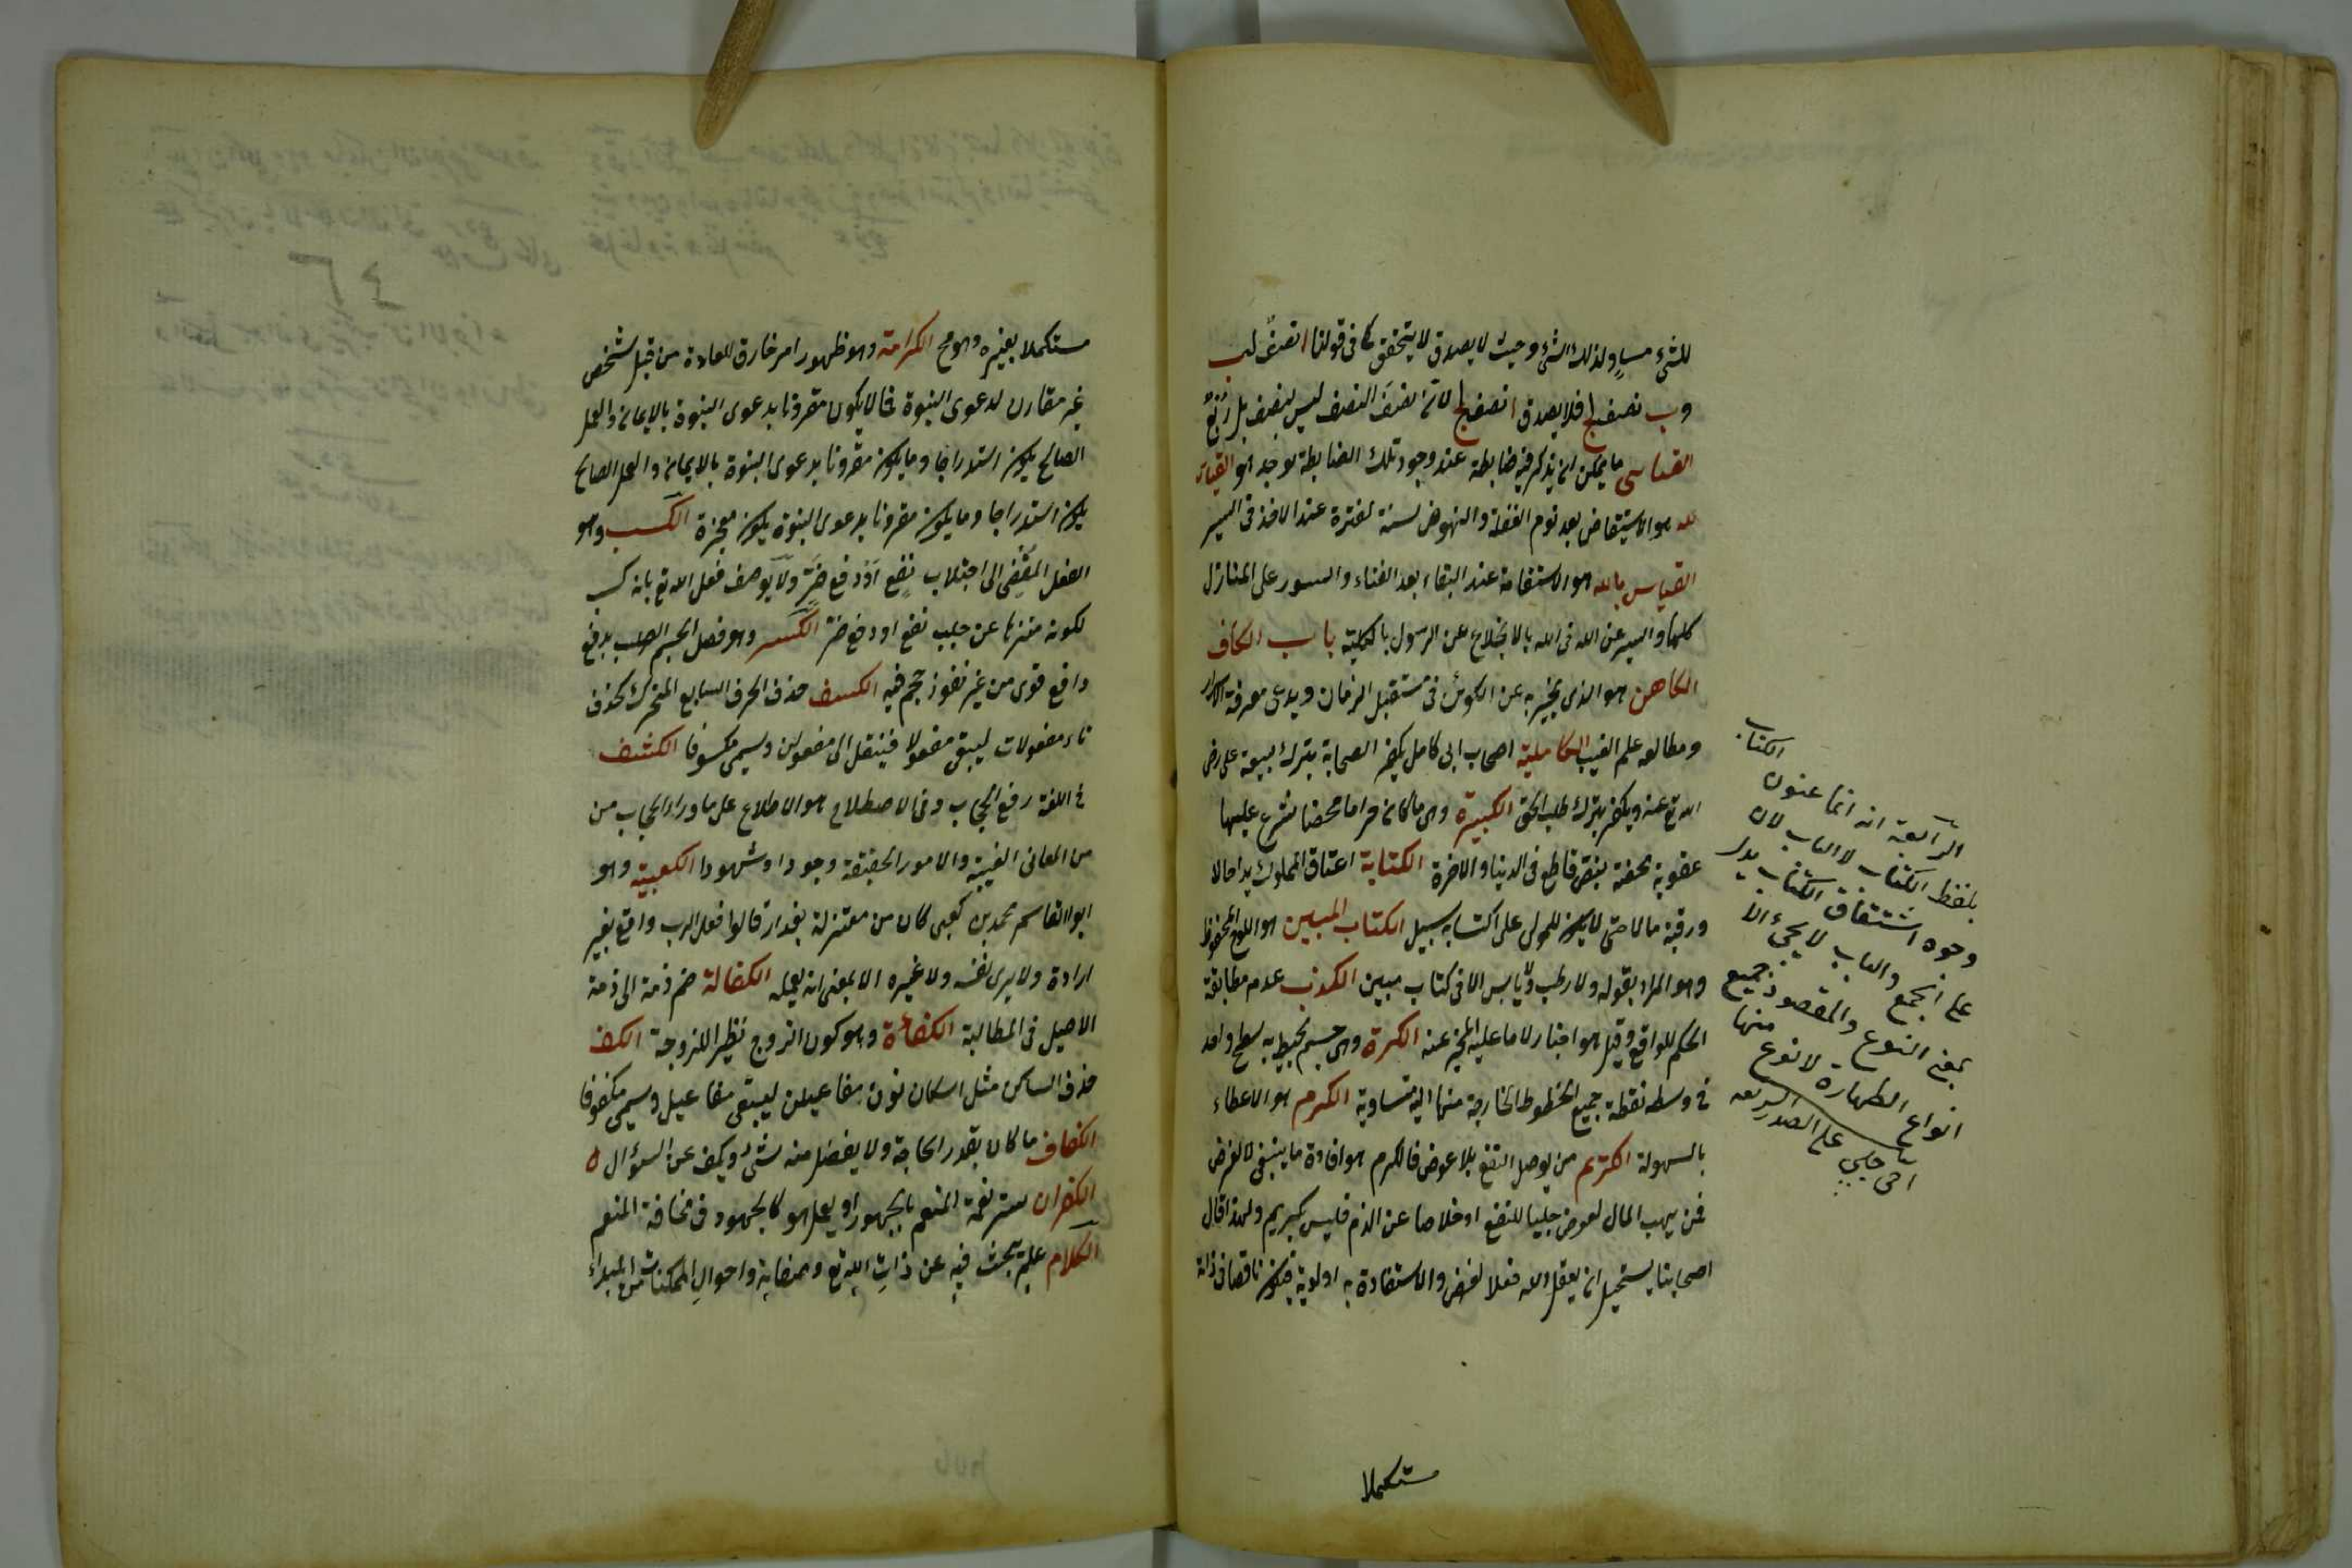 للشيء مساو لذلك الشيء وحيث لا يصدق لا يتحقق كما في قولنا ا نصف لب
وب نصف لج فلا يصدق ا نصف لج لان نصف النصف ليس بنصف بل ربع
القياسي ما يمكن ان يذكر فيه ضابطة عند وجود تلك الضابطة يوجد هو القيام
لله هو الاستيقاض بعد نوم الغفلة والنهوض لسنة لفترة عند الاخذ في السير
القياس بالله هو الاستقامة عند البقاء بعد الفناء والسور على المنازل
كلها والسير عن الله في الله بالانخلاع عن الرسول بالكلية باب الكاف
الكاهن هو الذي يخبر به عن الكوئن في مستقبل الزمان ويدعي معرفة الاسرار
ومطالعه علم الغيب الكاملية اصحاب ابي كامل يكفر الصحابة بترك بيعة على رض
الله تع عنه ويكفر بترك طلب الحق الكبيرة وهي ما كان حراما محضا شرع عليها
عقوبة محضة بنص قاطع في الدنيا والاخرة الكتابة اعتاق المملوك يدا حالا
ورقبة مالا حتى لا يكون للمولى على اكتسابه سبيل الكتاب المبين هو اللوح المحفوظ
وهو المراد بقوله ولا رطب ولا يابس الا في كتاب مبين الكذب عدم مطابقة
الحكم للواقع وقيل هو اخبار لا ما عليه المخبر عنه الكرة وهي جسم يحيط به سطح واحد
في وسطه نقطة جميع الخطوط الخارجة منها اليه متساوية الكرم هو الاعطاء
بالسهولة الكريم من يوصل النفع بلا عوض فالكرم هو افادة ما ينبغي لا لغرض
فمن يهب المال لعوض جلبا للنفع او خلاصا عن الذم فليس بكريم ولهذا قال
اصحابنا يستحيل ان يفعل الله فعلا لغرض والا استفاد به اولوية فيكون ناقصا في ذاته
مستكملا
الكتاب
الرابعة انه انما عنون
بلفظ الكتاب لا الباب لان
وجوه اشتقاق الكتاب يدل
على الجمع والباب لا يجئ الا
بمعنى النوع والمقصود جميع
انواع الطهارة لا نوع منها
اخي جلبي على الصدر الشريعه
مستكملا بغيره وهو مح الكرامة وهو ظهور امر خارق للعادة من قبل شخص
غير مقارن لدعوى النبوة فما لا يكون مقرونا بدعوى النبوة بالايمان والعمل
الصالح يكون استدراجا وما يكون مقرونا بدعوى النبوة بالايمان والعمل الصالح
يكون استدراجا وما يكون مقرونا بدعوى النبوة يكون معجزة الكسب وهو
الفعل المفضي الى اجتلاب نفع او دفع ضر ولا يوصف فعل الله تع بانه كسب
لكونه منزها عن جلب نفع او دفع ضر الكسر وهو فصل الجسم الصلب بدفع
دافع قوى من غير نفوذ حجم فيه الكسف حذف الحرف السابع المتحرك كحذف
تاء مفعولات ليبقى مفعولا فينقل الى مفعولن ويسمى مكسوفا الكشف
في اللغة رفع الحجاب وفي الاصطلاح هو الاطلاع على ما وراء الحجاب من
من المعاني الغيبية والامور الحقيقة وجودا وشهودا الكعبية وهو
ابو القاسم محمد بن كعبى كان من معتزلة بغداد قالوا فعل الرب واقع بغير
ارادة ولا يرى نفسه ولا غيره الا بمعنى انه يعلمه الكفالة ضم ذمة الى ذمة
الاصيل في المطالبة الكفاءة وهو كون الزوج نظيرا للزوجة الكف
حذف الساكن مثل اسكان نون مفاعيلن ليبقى مفاعيل ويسمى مكفوفا
الكفاف ما كان بقدر الحاجة ولا يفضل منه شيء ويكف عن السؤال ه
الكفران ستر نعمة المنعم بالجهود او بعمل هو كالجهود في مخافة المنعم
الكلام علم يبحث فيه عن ذات الله تع وصفاته واحوال الممكنات من المبداء